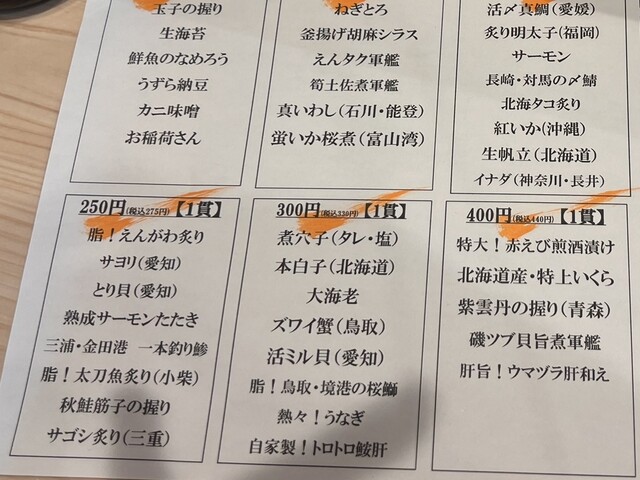 玉子の握り
生海苔
鮮魚のなめろう
うずら納豆
カニ味噌
お稲荷さん
ねぎとろ
釜揚げ胡麻シラス
えんタク軍艦
筍土佐煮軍艦
真いわし(石川・能登)
蛍いか桜煮(富山湾)
活〆真鯛(愛媛)
炙り明太子(福岡)
サーモン
長崎・対馬の〆鯖
北海タコ炙り
紅いか(沖縄)
生帆立(北海道)
イナダ(神奈川・長井)
250円(税込275円)【1貫】
脂!えんがわ炙り
サヨリ(愛知)
とり貝(愛知)
熟成サーモンたたき
三浦・金田港 一本釣り鯵
脂!太刀魚炙り(小柴)
秋鮭筋子の握り
サゴシ炙り(三重)
300円(税込330円)【1貫】
煮穴子(タレ・塩)
本白子(北海道)
大海老
ズワイ蟹(鳥取)
活ミル貝(愛知)
脂!鳥取・境港の桜鰤
熱々!うなぎ
自家製!トロトロ鮟肝
400円(税込440円)【1貫】
特大!赤えび煎酒漬け
北海道産・特上いくら
紫雲丹の握り(青森)
磯ツブ貝旨煮軍艦
肝旨!ウマヅラ肝和え